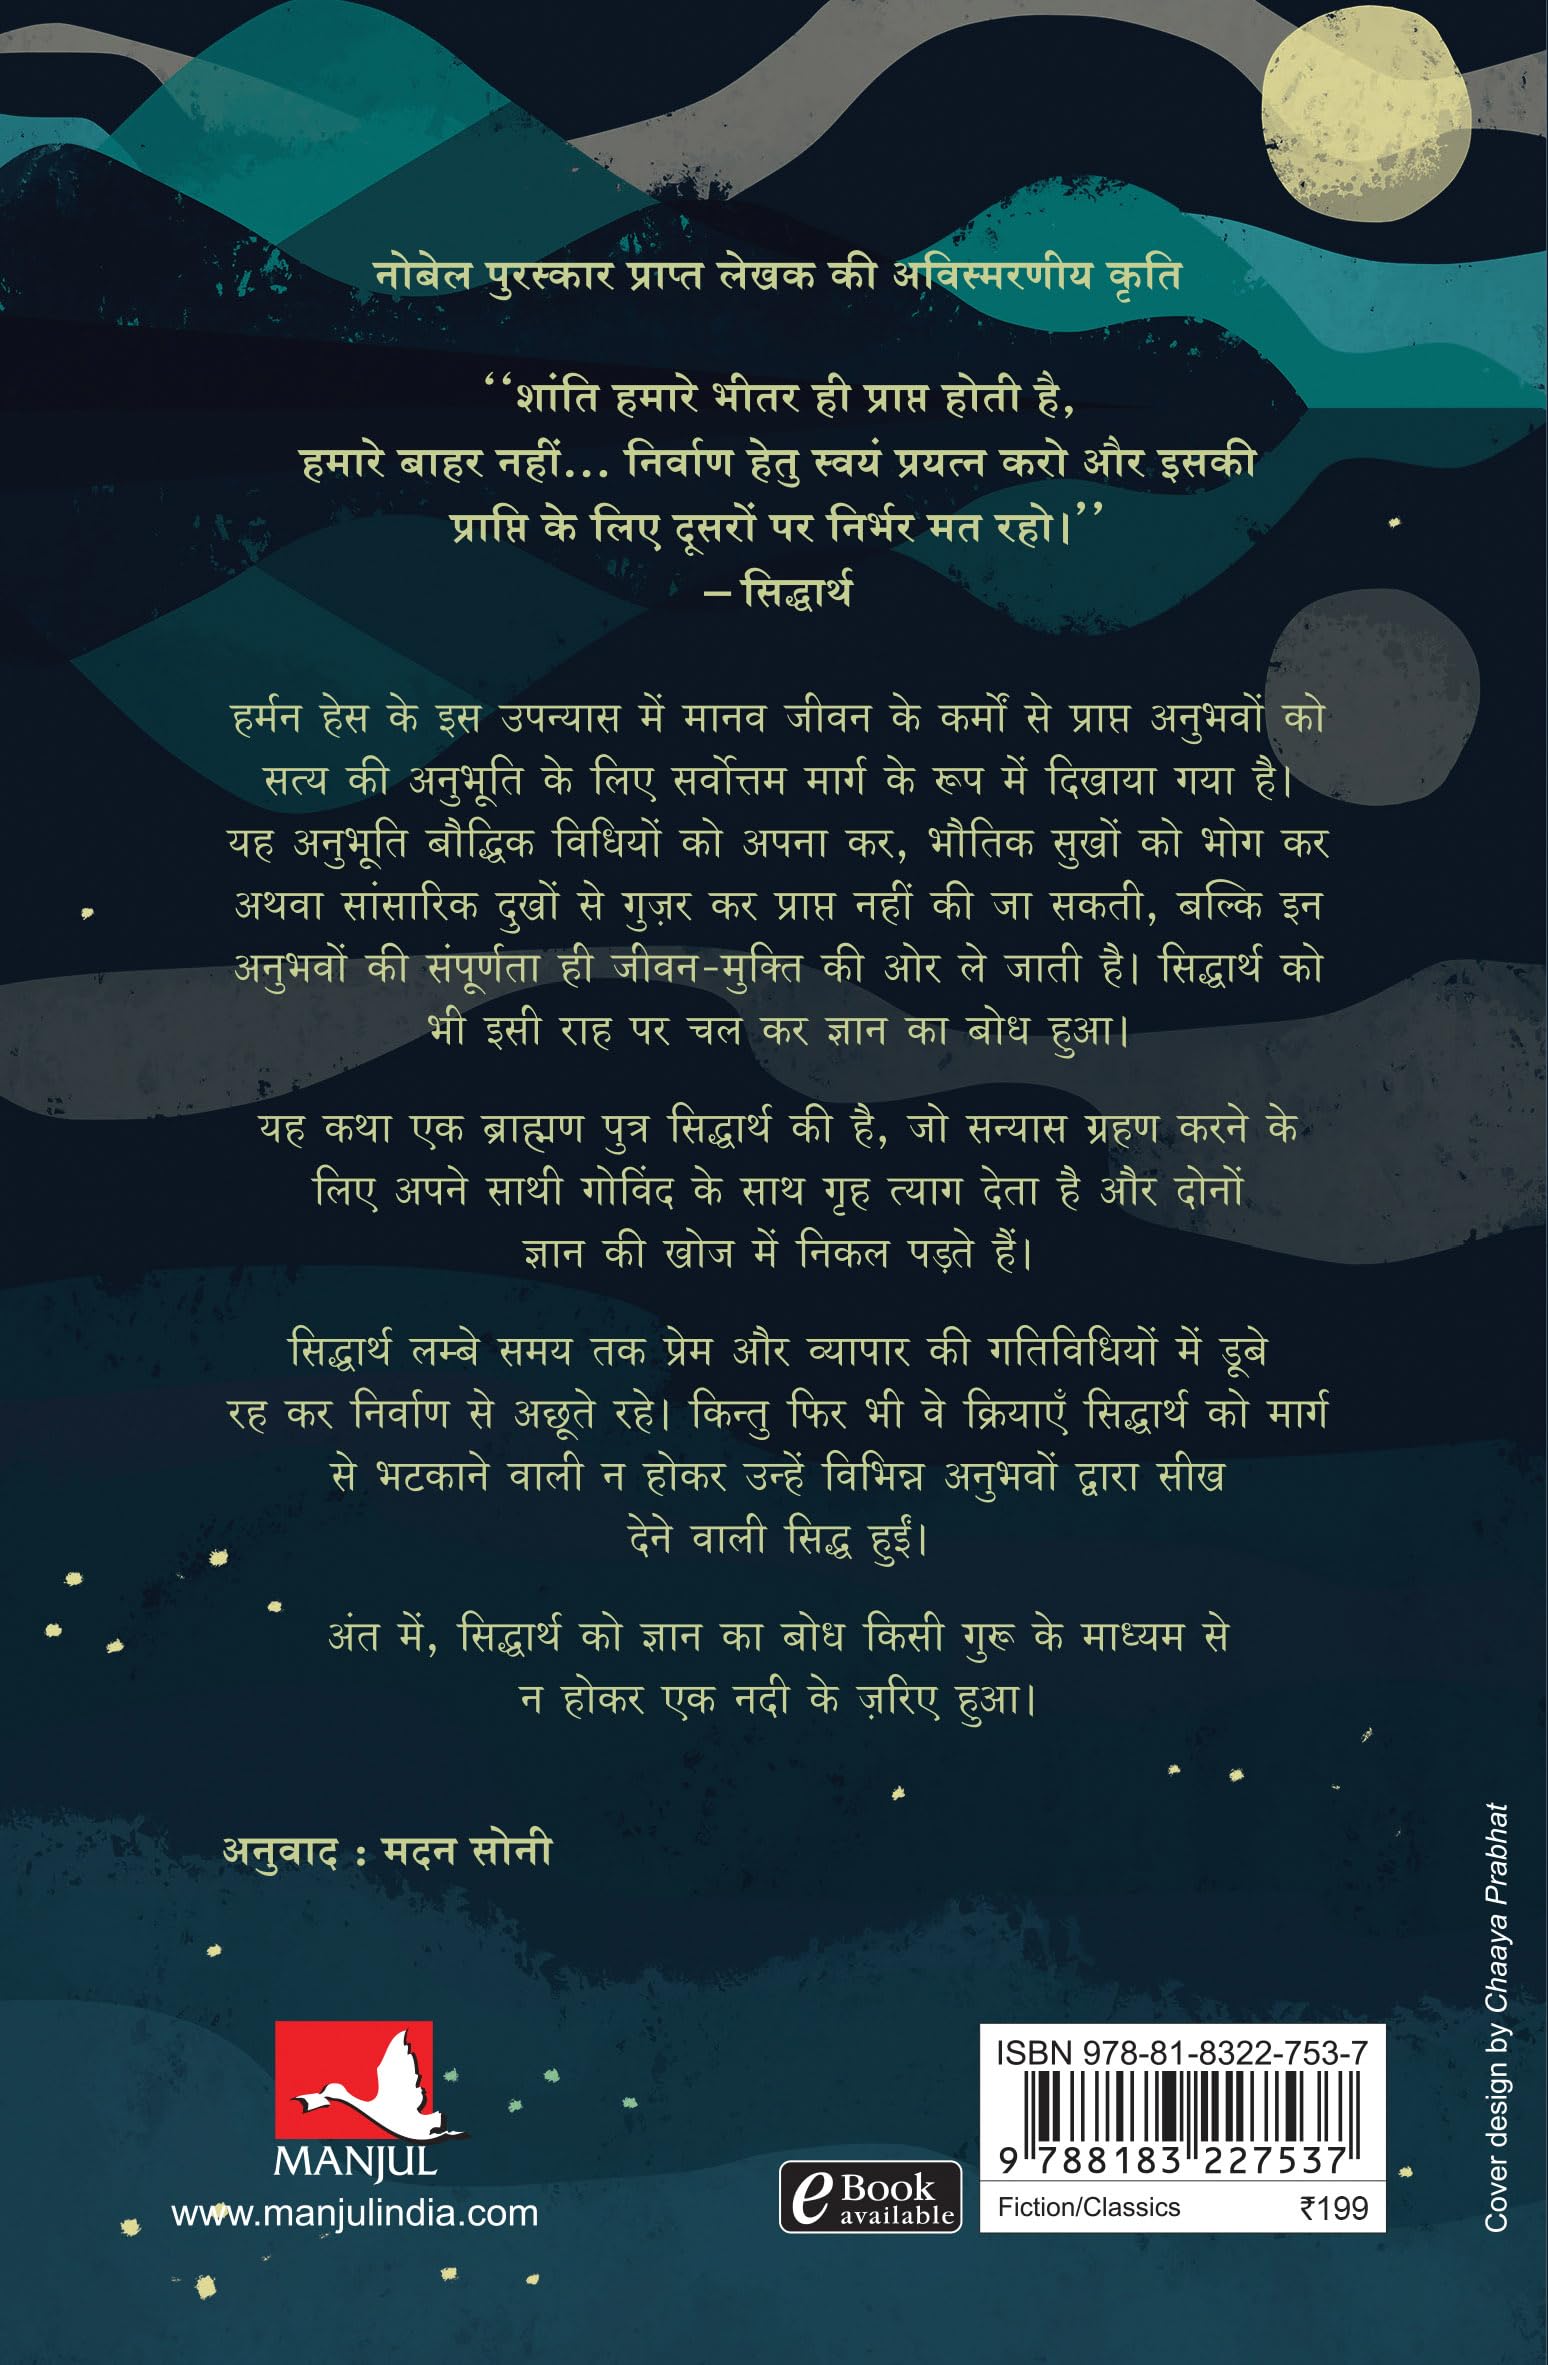 नोबेल पुरस्कार प्राप्त लेखक की अविस्मरणीय कृति
‘‘शांति हमारे भीतर ही प्राप्त होती है,
हमारे बाहर नहीं... निर्वाण हेतु स्वयं प्रयत्न करो और इसकी
प्राप्ति के लिए दूसरों पर निर्भर मत रहो।’’
– सिद्धार्थ
हर्मन हेस के इस उपन्यास में मानव जीवन के कर्मों से प्राप्त अनुभवों को
सत्य की अनुभूति के लिए सर्वोत्तम मार्ग के रूप में दिखाया गया है।
यह अनुभूति बौद्धिक विधियों को अपना कर, भौतिक सुखों को भोग कर
अथवा सांसारिक दुखों से गुज़र कर प्राप्त नहीं की जा सकती, बल्कि इन
अनुभवों की संपूर्णता ही जीवन-मुक्ति की ओर ले जाती है। सिद्धार्थ को
भी इसी राह पर चल कर ज्ञान का बोध हुआ।
यह कथा एक ब्राह्मण पुत्र सिद्धार्थ की है, जो सन्यास ग्रहण करने के
लिए अपने साथी गोविंद के साथ गृह त्याग देता है और दोनों
ज्ञान की खोज में निकल पड़ते हैं।
सिद्धार्थ लम्बे समय तक प्रेम और व्यापार की गतिविधियों में डूबे
रह कर निर्वाण से अछूते रहे। किन्तु फिर भी वे क्रियाएँ सिद्धार्थ को मार्ग
से भटकाने वाली न होकर उन्हें विभिन्न अनुभवों द्वारा सीख
देने वाली सिद्ध हुईं।
अंत में, सिद्धार्थ को ज्ञान का बोध किसी गुरू के माध्यम से
न होकर एक नदी के ज़रिए हुआ।
अनुवाद : मदन सोनी
MANJUL
www.manjulindia.com
e Book
available
ISBN 978-81-8322-753-7
9 788183 227537
Fiction/Classics ₹199
Cover design by Chaaya Prabhat